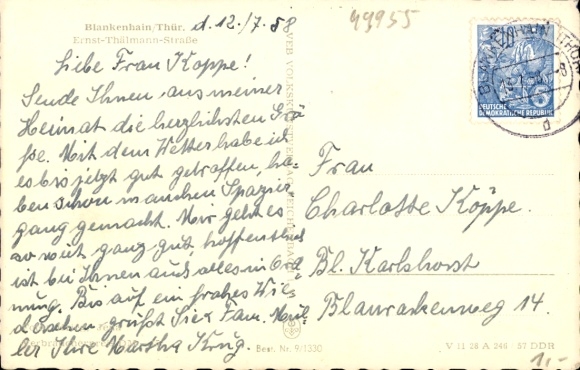 Blankenhain/Thür.
Ernst-Thälmann-Straße
d. 12./7.58
49955
Liebe Frau Koppe!
Sende Ihnen aus meiner
Heimat die herzlichsten Grü-
ße. Mit dem Wetter habe ich
es bis jetzt gut getroffen, ha-
ben schon manchen Spazier
gang gemacht. Mir geht es
so weit ganz gut, hoffentlich
ist bei Ihnen auch alles in Ord
nung. Bis auf ein frohes Wie-
dersehen grüßt Sie Fam. Mül
ler Ihre Martha Krug.
Best. Nr. 9/1330
DEUTSCHE
DEMOKRATISCHE REPUBLIK
Frau
Charlotte Köppe.
Bl. Karlshorst
Blaurackenweg 14.
V 11 28 A 246 57 DDR
1,-